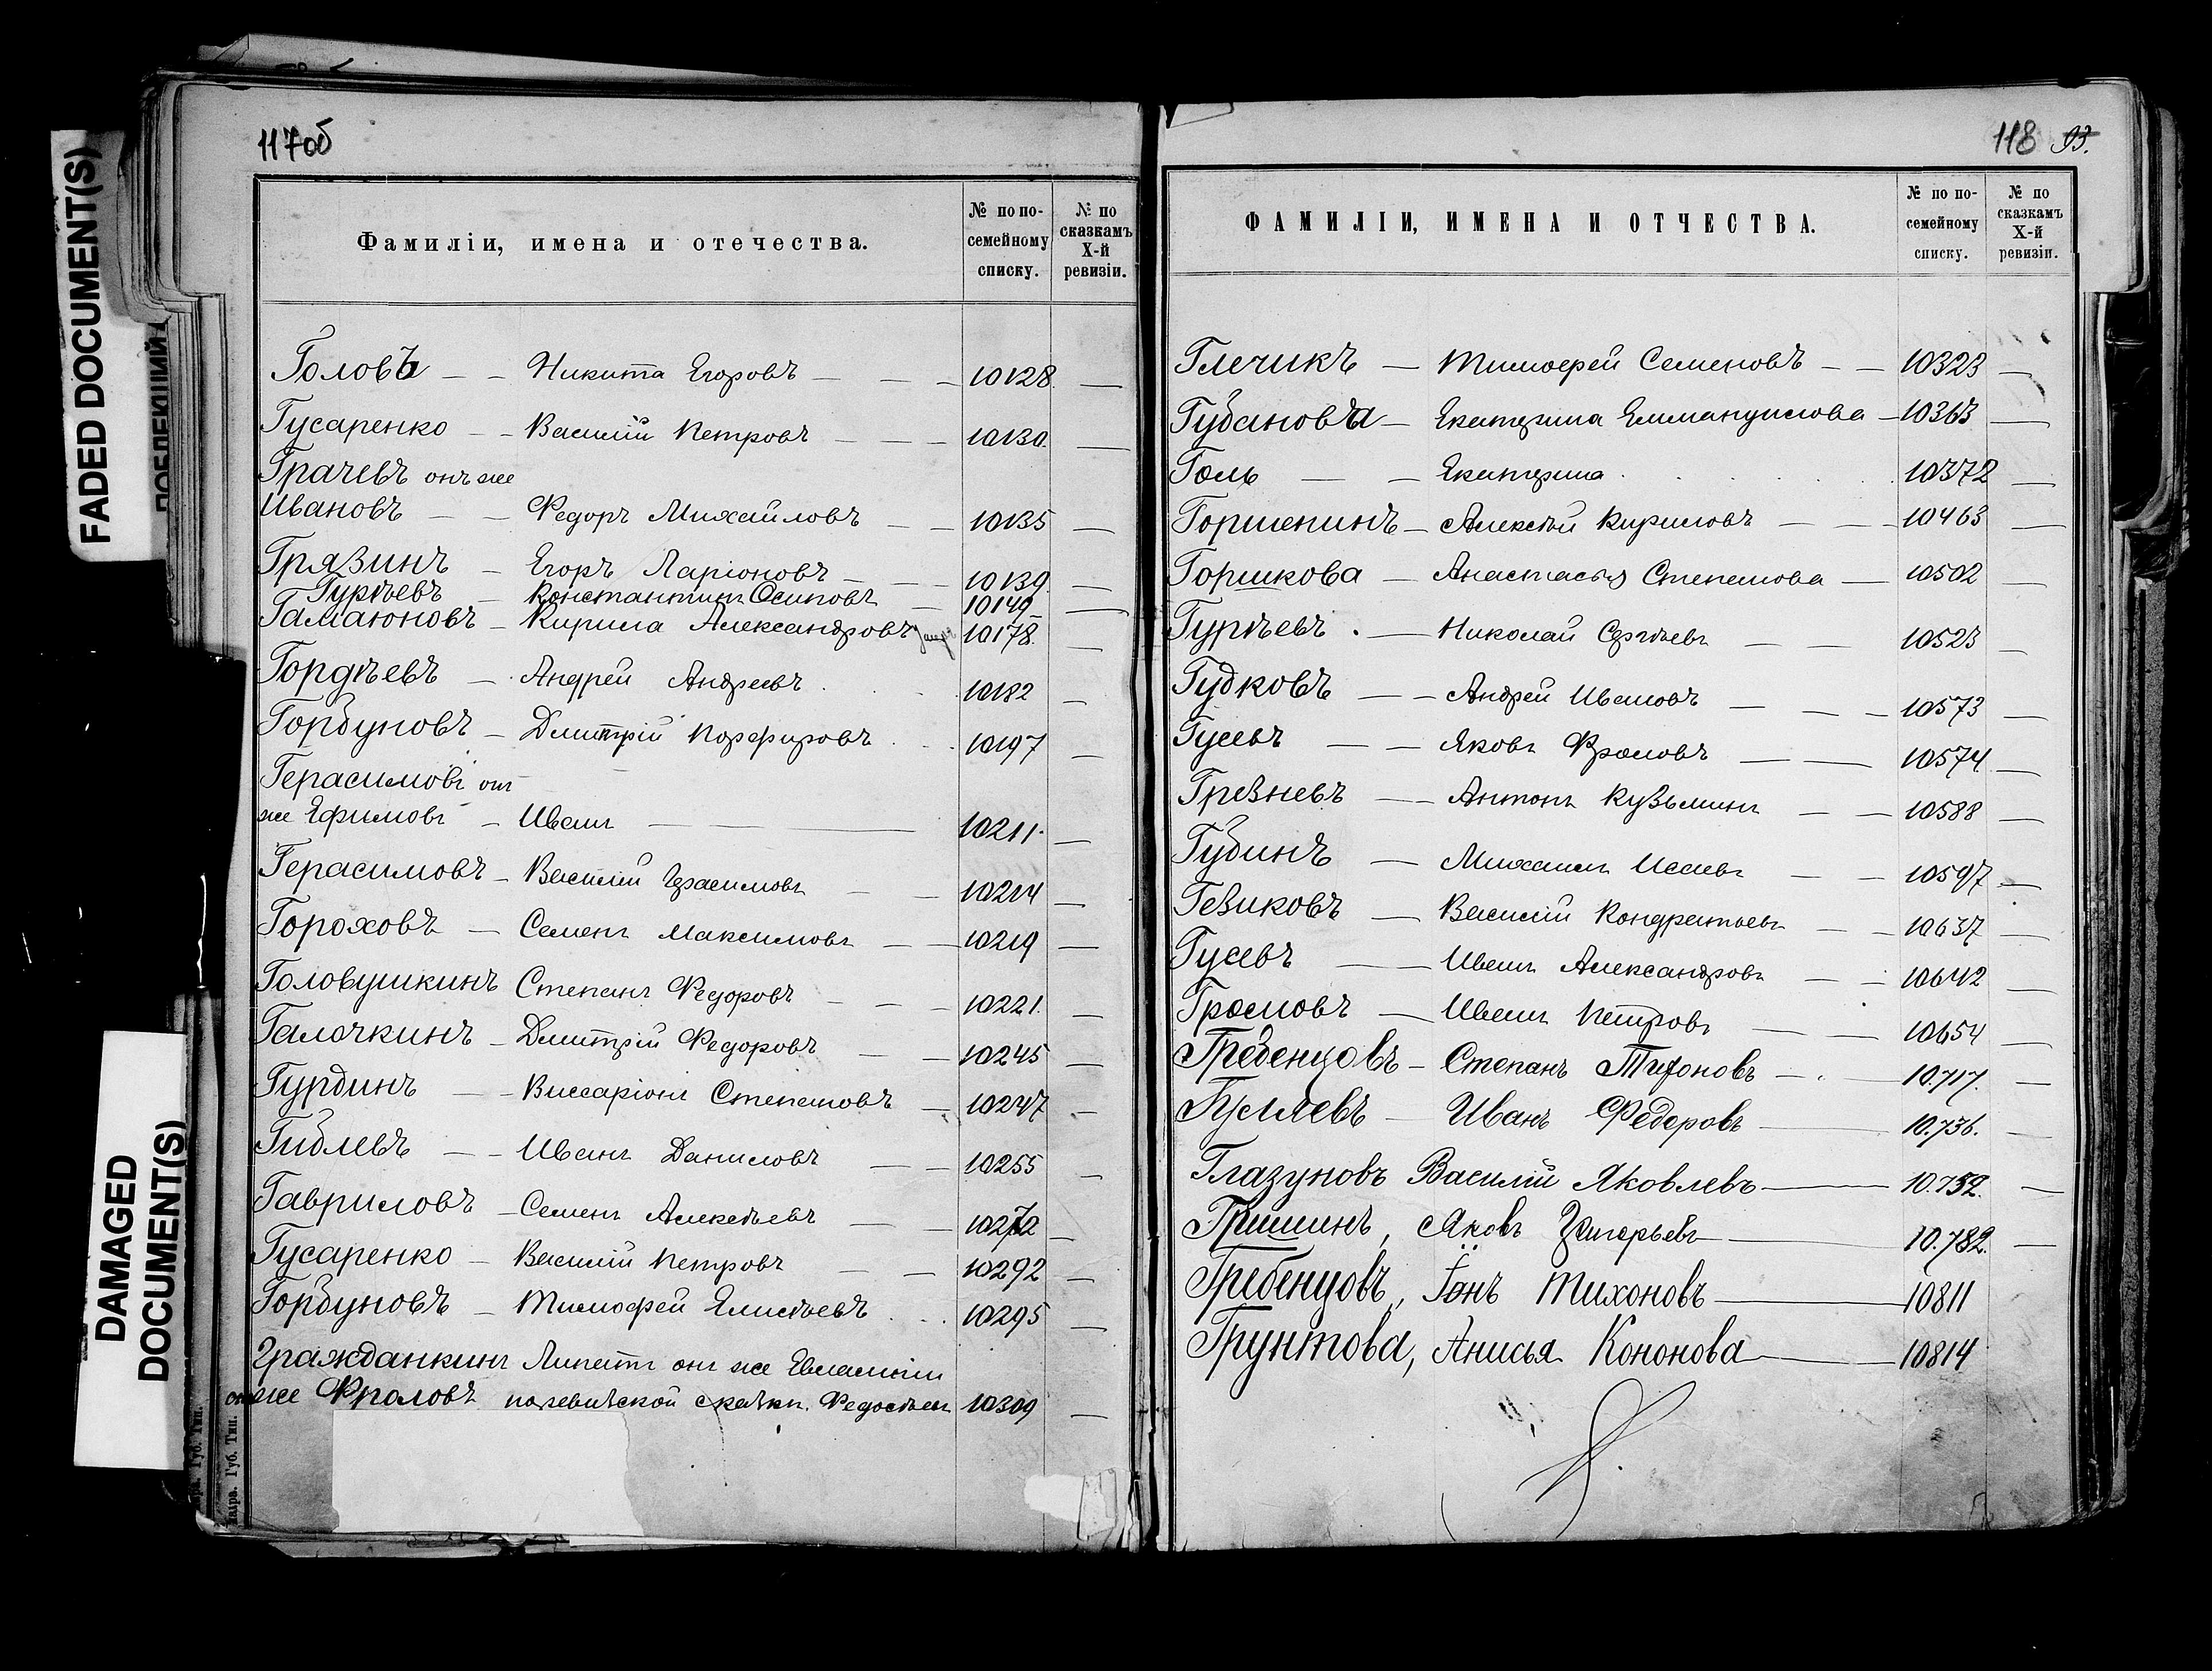 FADED DOCUMENT(S)
DAMAGED
DOCUMENT(S)
117об
Фамиліи, имена и отечества.
№ по по-
семейному
списку.
№ по
сказкамъ
X-й
ревизіи.
Головъ — — Никита Егоровъ — — — 10128 —
Гусаренко — — Василій Петровъ — — — 10130. —
Грачевъ онъ же
Ивановъ — — Федоръ Михайловъ — — 10135 —
Грязинъ — Егоръ Ларіоновъ — — — 10139 —
Гурьевъ — Константинъ Осиповъ — 10149 —
Гамаюновъ — Кирила Александровъ 10178. —
Гордѣевъ — Андрей Андреевъ 10182 —
Горбуновъ — Дмитрій Порфировъ 10197 —
Герасимовъ онъ
же Ефимовъ — Иванъ — — 10211. —
Герасимовъ — Василій Герасимовъ — — 10214 —
Гороховъ — Семенъ Максимовъ — — 10219 —
Головушкинъ Степанъ Федоровъ — — — 10221. —
Галочкинъ — Дмитрій Федоровъ — — 10245 —
Гурдинъ — — Виссаріонъ Степановъ — 10247 —
Гиблевъ — — Иванъ Даниловъ — — 10255 —
Гавриловъ — Семенъ Алексѣевъ — — 10272 —
Гусаренко — Василій Петровъ — — 10292 —
Горбуновъ — Тимофей Елисѣевъ 10295 —
Гражданкинъ Липатъ онъ же Евлампій
онъ же Фроловъ по ревизской сказкѣ Федосѣевъ 10309 —
118 93.
ФАМИЛІИ, ИМЕНА И ОТЧЕСТВА.
№ по по-
семейному
списку.
№ по
сказкамъ
X-й
ревизіи.
Глечикъ — Тимофей Семеновъ — — 10323 —
Губанова — Екатерина Еммануилова — 10363 —
Голь — — Екатерина 10372 —
Горшенинъ — Алексѣй Кириловъ — — 10463 —
Горшкова — Анастасья Степанова — 10502 —
Гурьевъ — Николай Сергѣевъ — — 10523 —
Гудковъ — — Андрей Ивановъ — — — 10573 —
Гусевъ — — Яковъ Фроловъ — — 10574 —
Грезневъ — — Антонъ Кузьминъ — — 10588 —
Губинъ — Михаилъ Исаевъ — — 10597 —
Гезиковъ — Василій Кондратьевъ — — 10637 —
Гусевъ — — Иванъ Александровъ — — 10642 —
Громовъ — Иванъ Петровъ — — 10654 —
Гребенцовъ — Степанъ Тихоновъ — — 10.717. —
Гуляевъ — Иванъ Федоровъ — 10.736. —
Глазуновъ Василій Яковлевъ — 10.752. —
Гришинъ, Яковъ Григорьевъ — 10.782. —
Гребенцовъ, Іонъ Тихоновъ — 10811
Грунтова, Анисья Кононова — 10814